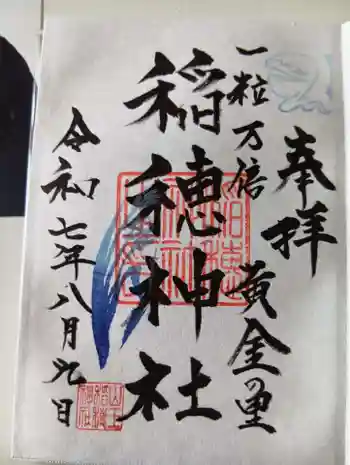 奉拝
一粒万倍 黄金の里
稲穂神社
令和七年八月九日